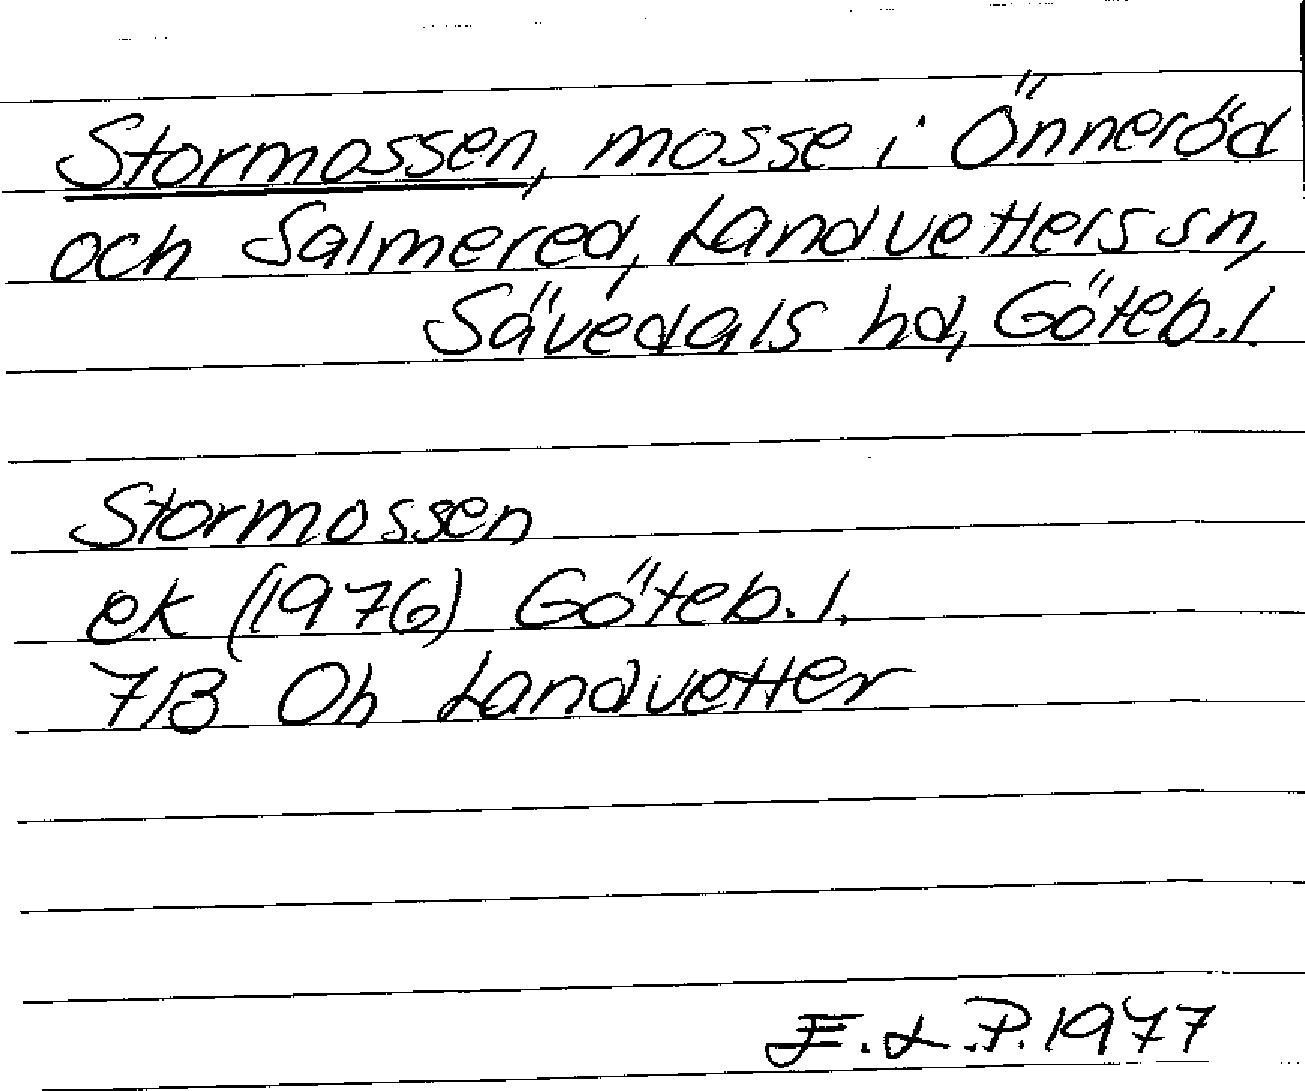 Stormossen, mosse i Önneröd
och Salmered, Landvetters sn,
Sävedals hd, Göteb.l.
Stormossen
ek (1976) Göteb.l.
7B 0h Landvetter
F.L.P. 1977